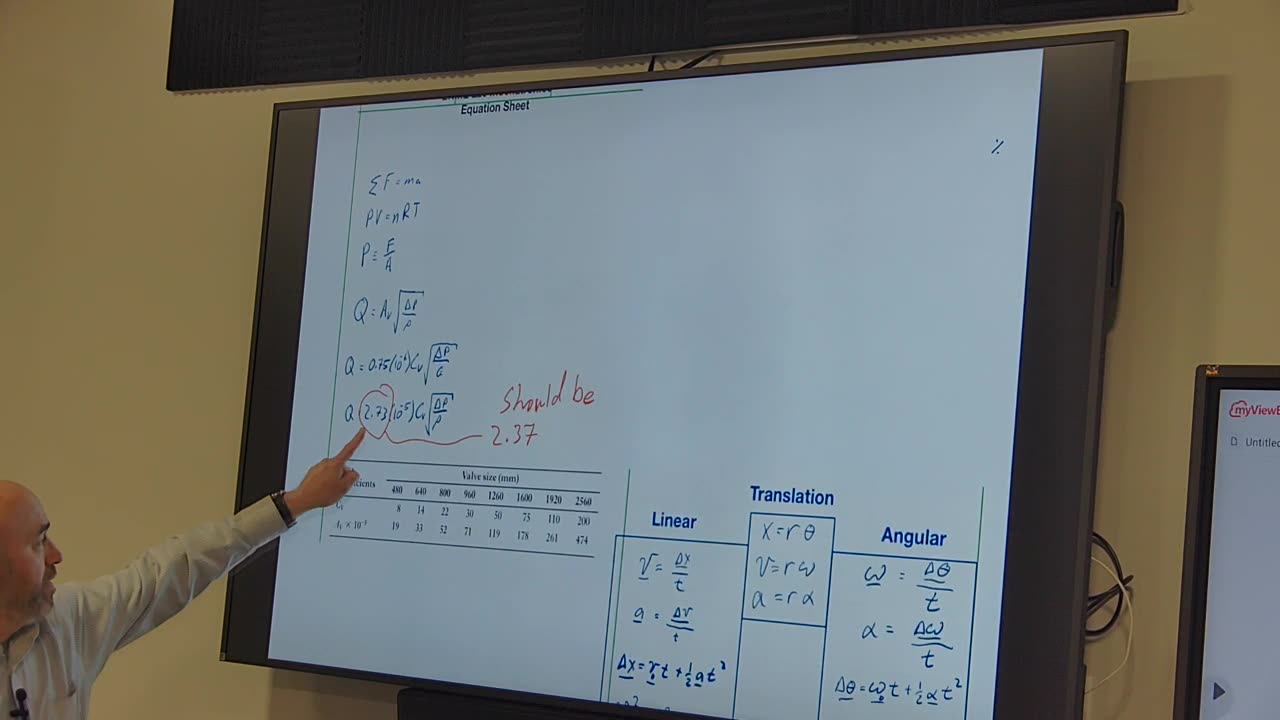 Equation Sheet
٪
ΣF=ma
PV=nRT
P=F/A
Q=Av√ΔP/ρ
Q=0.75(10⁻⁶)Cv√ΔP/G
Q 2.73(10⁻⁵)Cv√ΔP/ρ
Should be
2.37
Valve size (mm)
480 640 800 960 1260 1600 1920 2560
8 14 22 30 50 75 110 200
Av × 10⁻⁵ 19 33 52 71 119 178 261 474
Linear
v=Δx/t
a=Δv/t
Δx=v₀t+½at²
Translation
x=rθ
v=rω
a=rα
Angular
ω=Δθ/t
α=Δω/t
Δθ=ω₀t+½αt²
D. Untitled